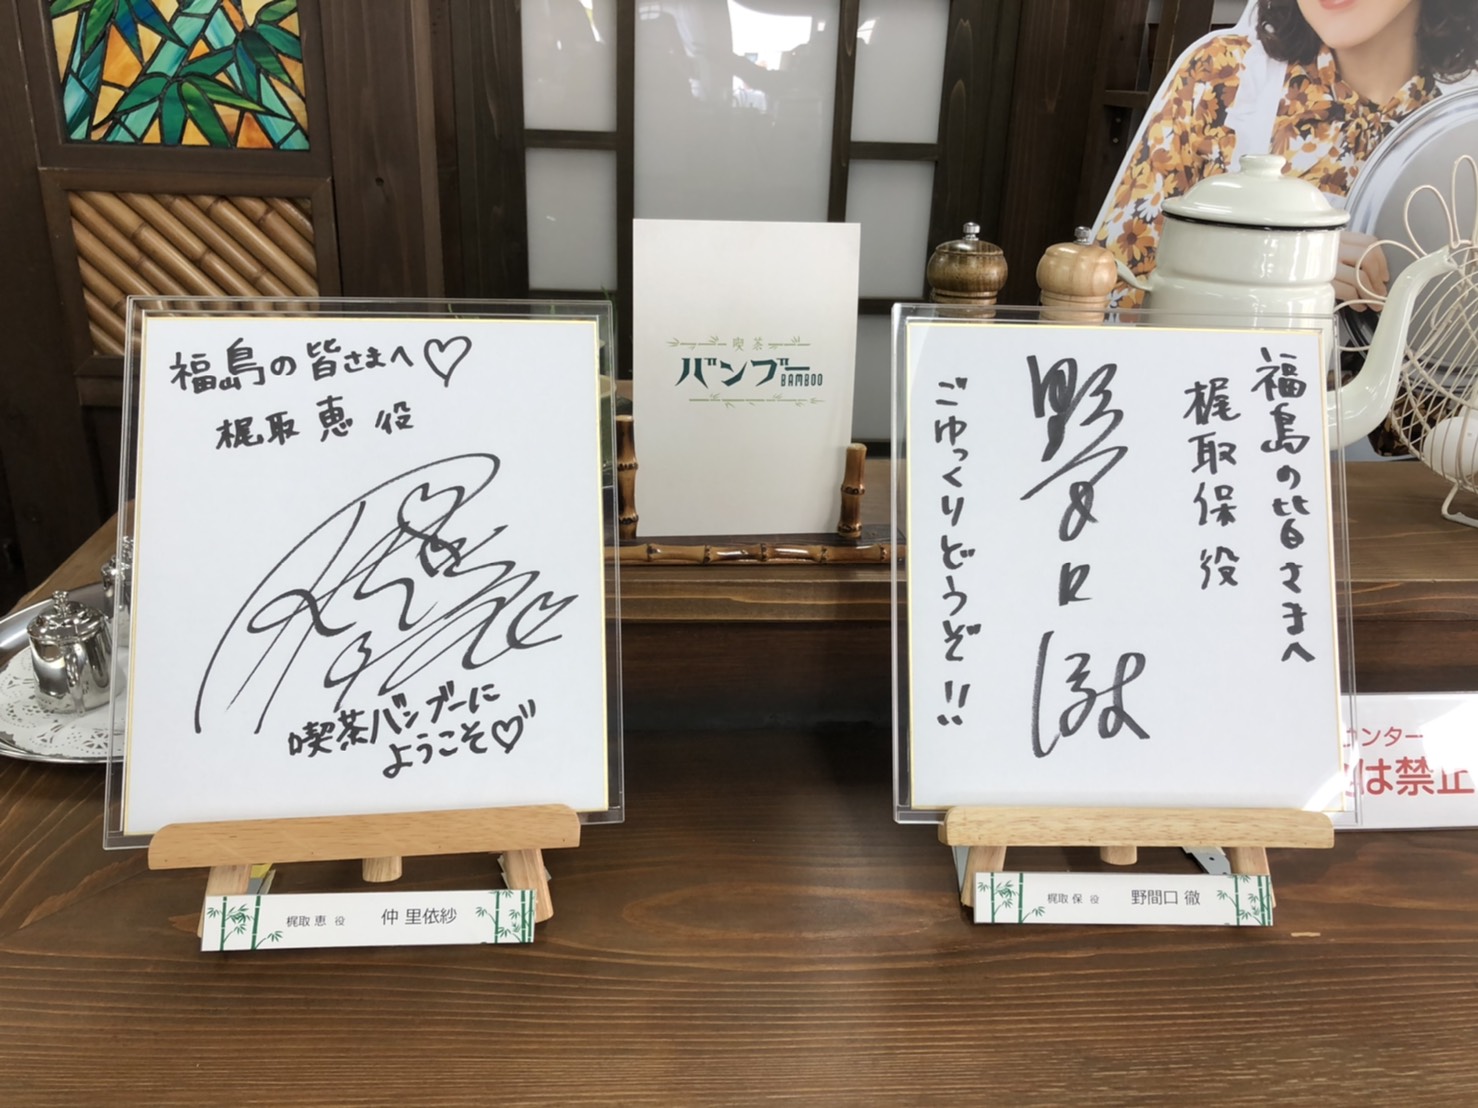 福島の皆さまへ♡
梶取 恵 役
喫茶バンブーに
ようこそ♡
梶取 恵 役 仲 里依紗
喫茶
バンブー
BAMBOO
福島の皆さまへ
梶取保役
野間口徹
ごゆっくりどうぞ!!
梶取 保 役 野間口 徹
ンター
は禁止